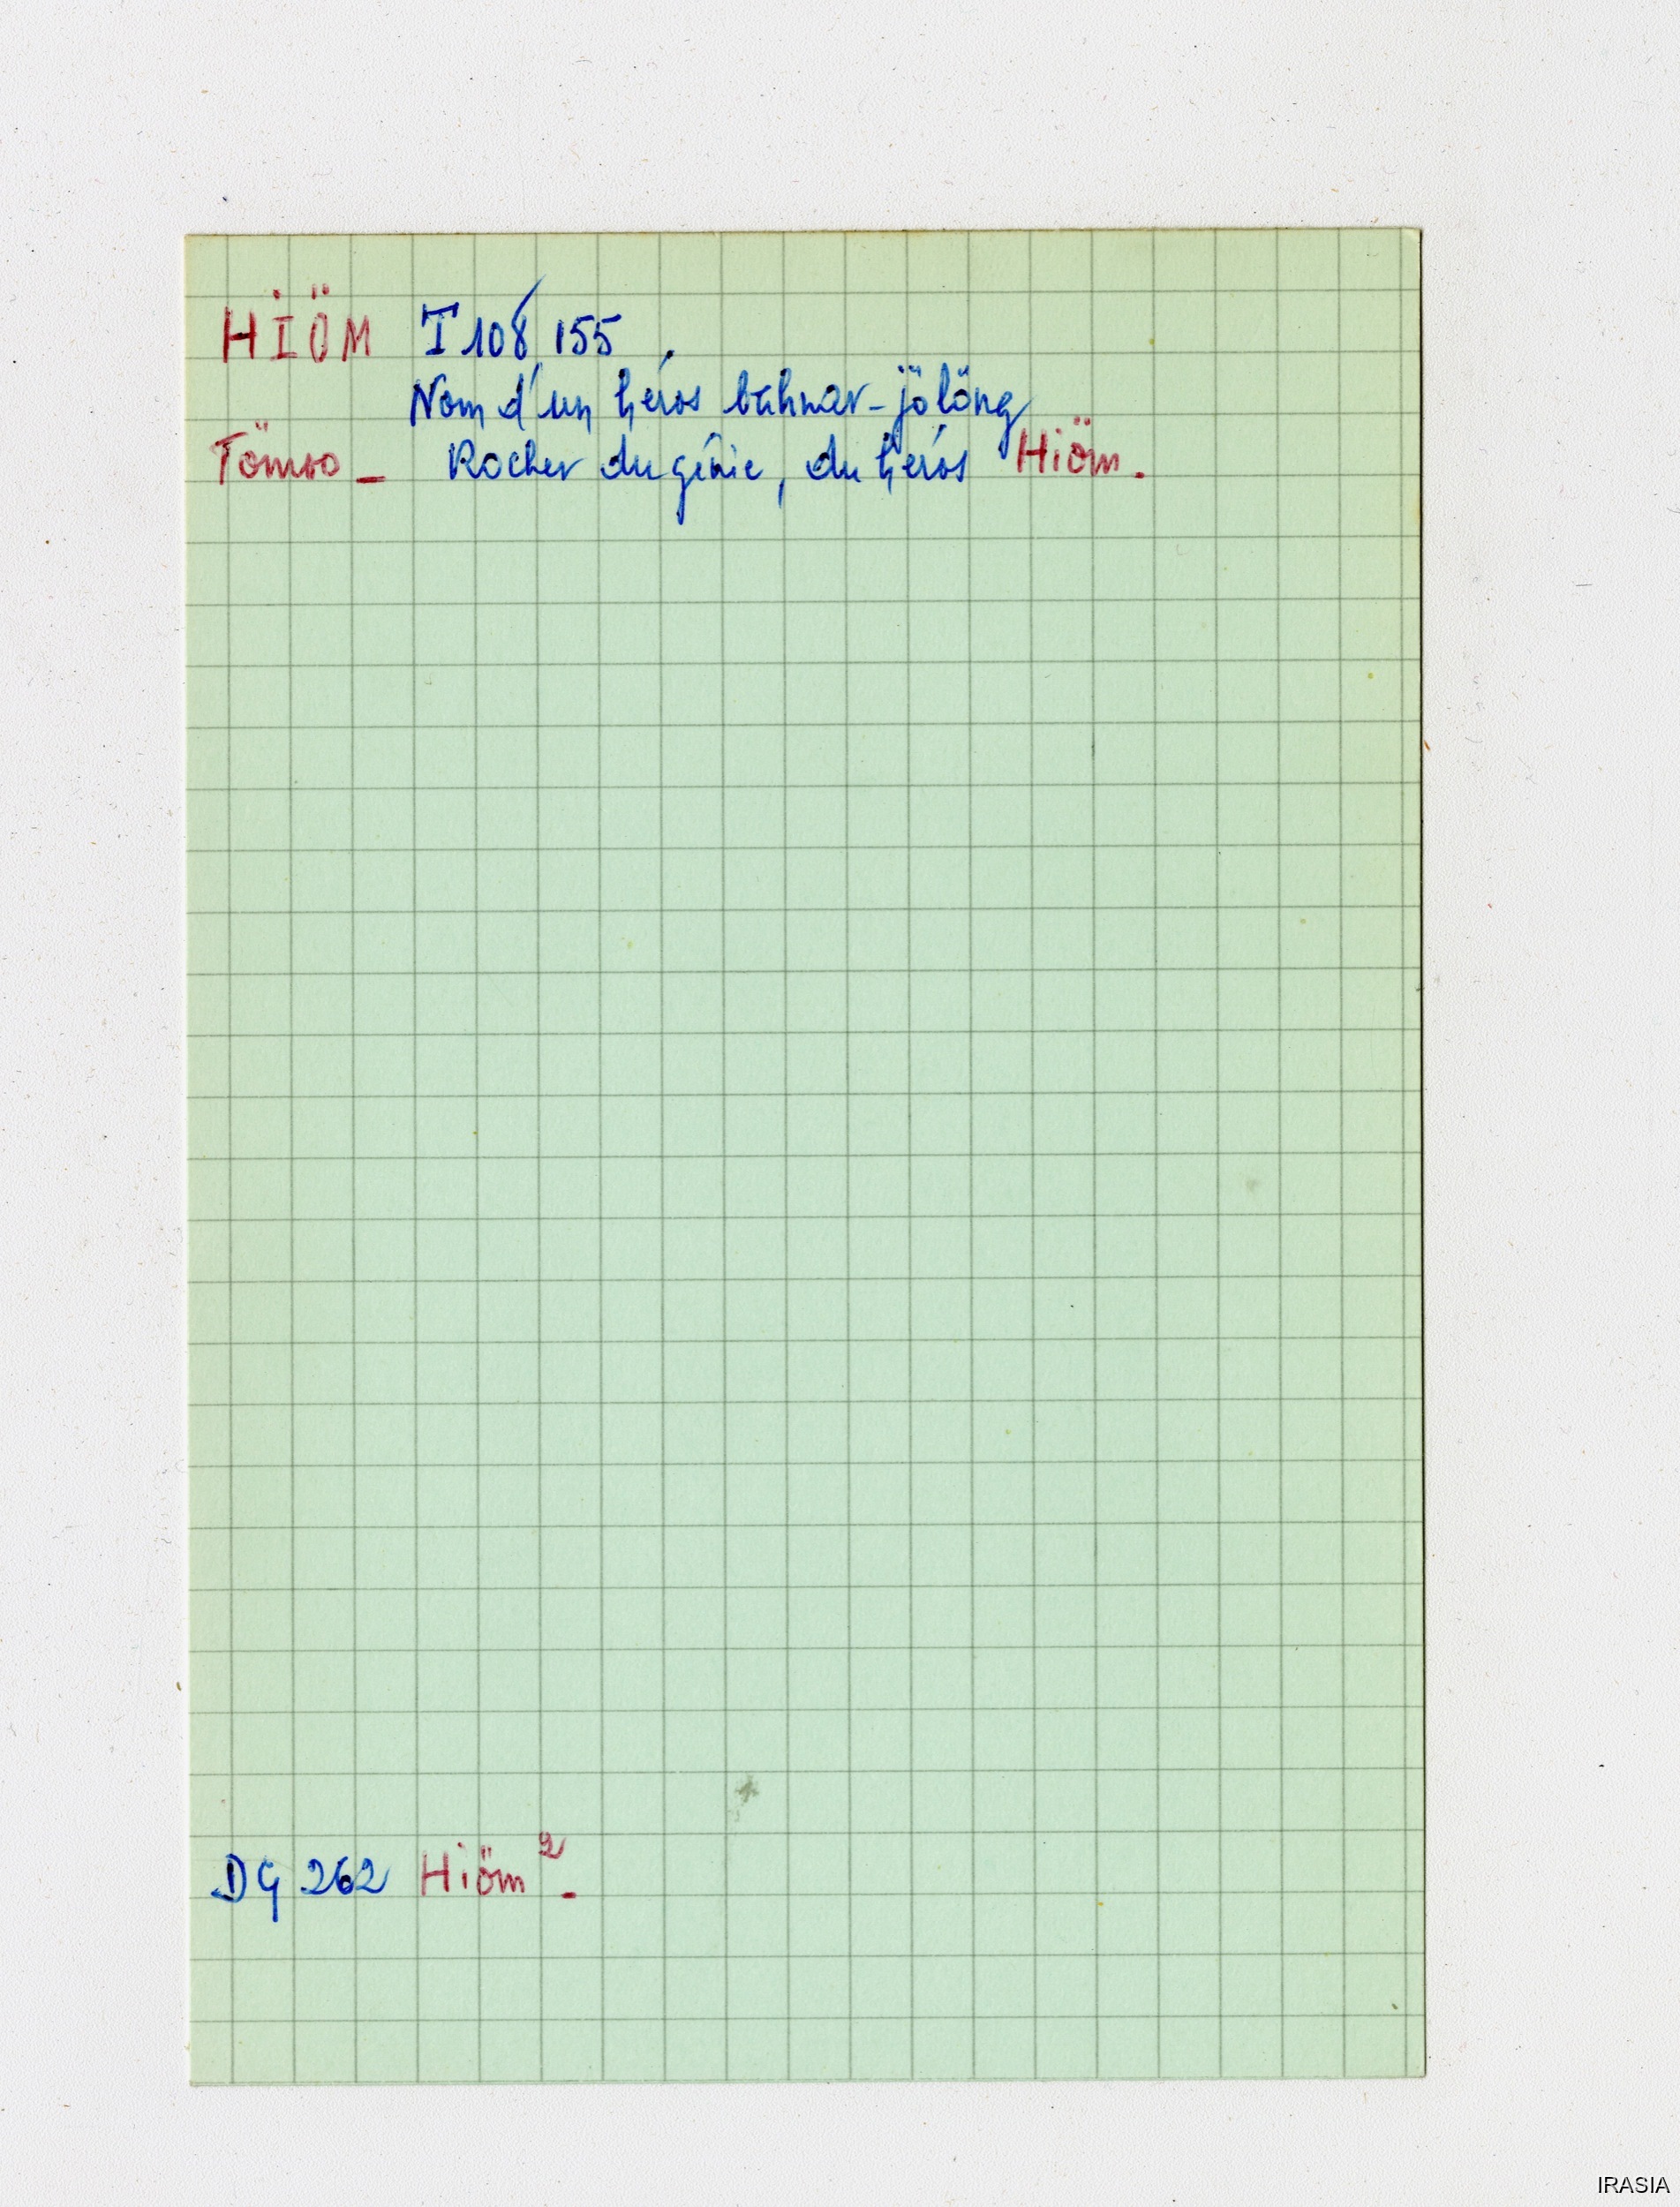 HIÖM T 108, 155.
Nom d'un héros bahnar-jölöng
Tömoo - Rocher du génie, du héros Hiöm.
DG 262 Hiöm 2 -
IRASIA